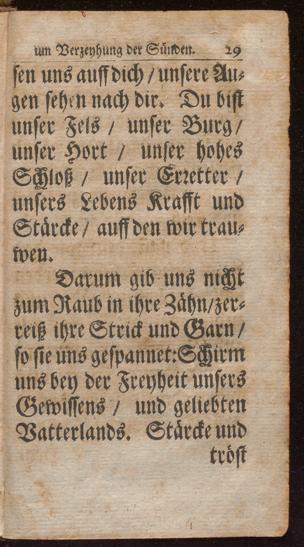 um Verzeyhung der Sünden. 29
sen uns auff dich / unsere Au-
gen sehen nach dir. Du bist
unser Fels / unser Burg /
unser Hort / unser hohes
Schloß / unser Erretter /
unsers Lebens Krafft und
Stärcke / auff den wir trau-
wen.
Darum gib uns nicht
zum Raub in ihre Zähn/zer-
reiß ihre Strick und Garn /
so sie uns gespannet: Schirm
uns bey der Freyheit unsers
Gewissens / und geliebten
Vatterlands. Stärcke und
tröst